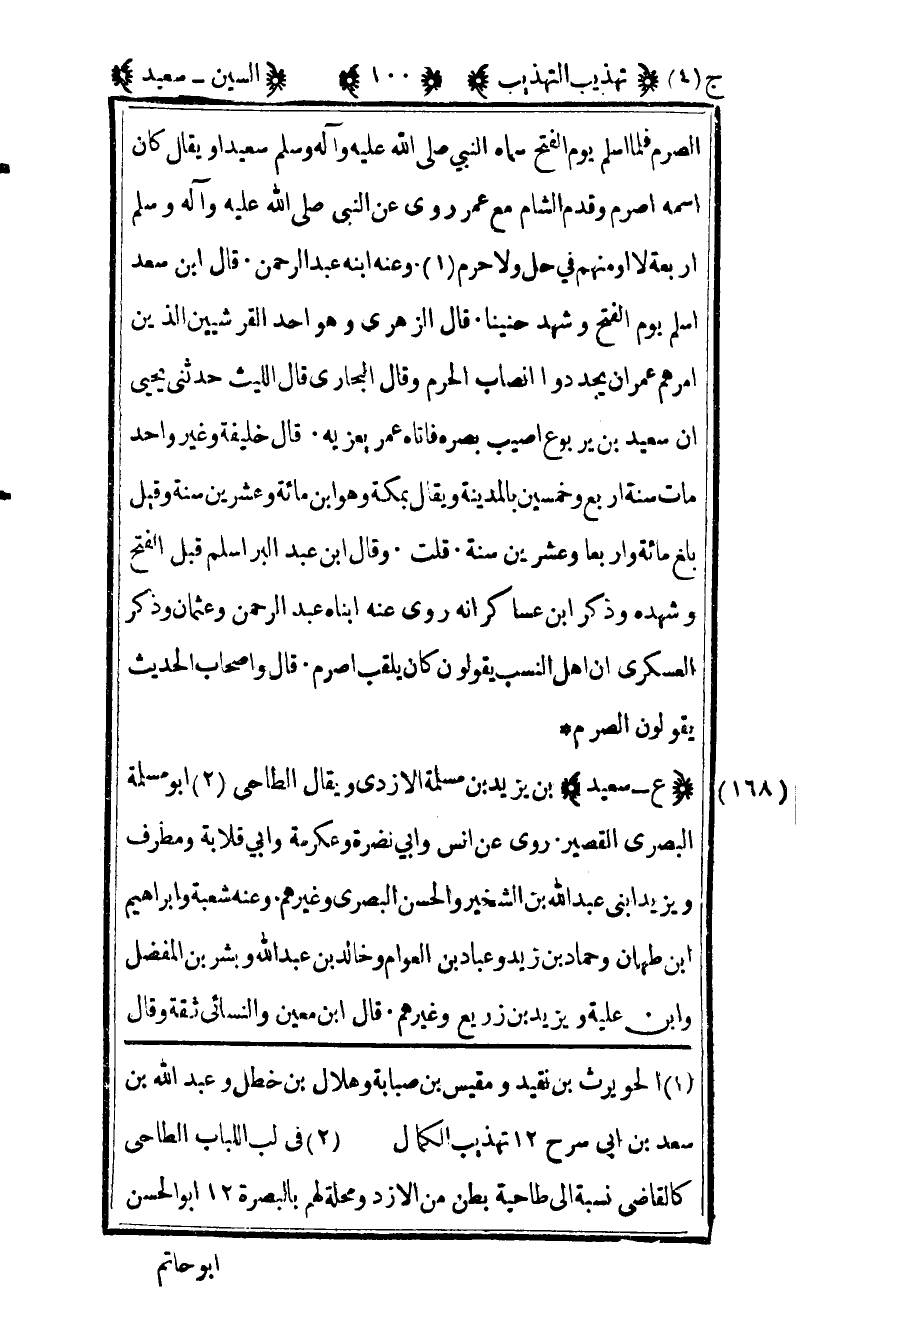 ج (٤) ﴿ تهذيب التهذيب ﴾ ﴿ ١٠٠ ﴾ ﴿ السين ـ سعيد ﴾
الصرم فلما اسلم يوم الفتح سماه النبي صلى الله عليه وآله وسلم سعيدا و يقال كان
اسمه اصرم وقدم الشام مع عمر روى عن النبى صلى الله عليه وآله وسلم
اربعة لا اومنهم في حل ولا حرم (١)٠ وعنه ابنه عبد الرحمن ٠ قال ابن سعد
اسلم يوم الفتح و شهد حنينا ٠ قال الزهرى و هو احد القرشيين الذين
امرهم عمر ان يجددوا انصاب الحرم وقال البخارى قال الليث حدثنى يحيى
ان سعيد بن يربوع اصيب بصره فاتاه عمر يعزيه ٠ قال خليفة وغير واحد
مات سنة اربع وخمسين بالمدينة ويقال بمكة وهو ابن مائة وعشرين سنة وقيل
بلغ مائة واربعا وعشرين سنة ٠ قلت ٠ وقال ابن عبد البر اسلم قبل الفتح
و شهده وذكر ابن عساكر انه روى عنه ابناه عبد الرحمن وعثمان وذكر
العسكرى ان اهل النسب يقولون كان يلقب اصرم ٠ قال واصحاب الحديث
يقولون الصرم*
(١٦٨) ﴿ ع ـ سعيد ﴾ بن يزيد بن مسلمة الازدى و يقال الطاحى (٢) ابو مسلمة
البصرى القصير ٠ روى عن انس وابي نضرة وعكرمة وابي قلابة ومطرف
ويزيد ابنى عبد الله بن الشخير والحسن البصرى وغيرهم ٠ وعنه شعبة وابراهيم
ابن طهمان وحماد بن زيد وعباد بن العوام وخالد بن عبد الله وبشر بن المفضل
وابن علية و يزيد بن زريع وغيرهم ٠ قال ابن معين والنسائى ثقة وقال
(١) الحويرث بن نقيد و مقيس بن صبابة وهلال بن خطل و عبد الله بن
سعد بن ابى سرح ١٢ تهذيب الكمال (٢) فى لب اللباب الطاحى
كالقاضى نسبة الى طاحية بطن من الازد ومحلة لهم بالبصرة ١٢ ابو الحسن
ابو حاتم